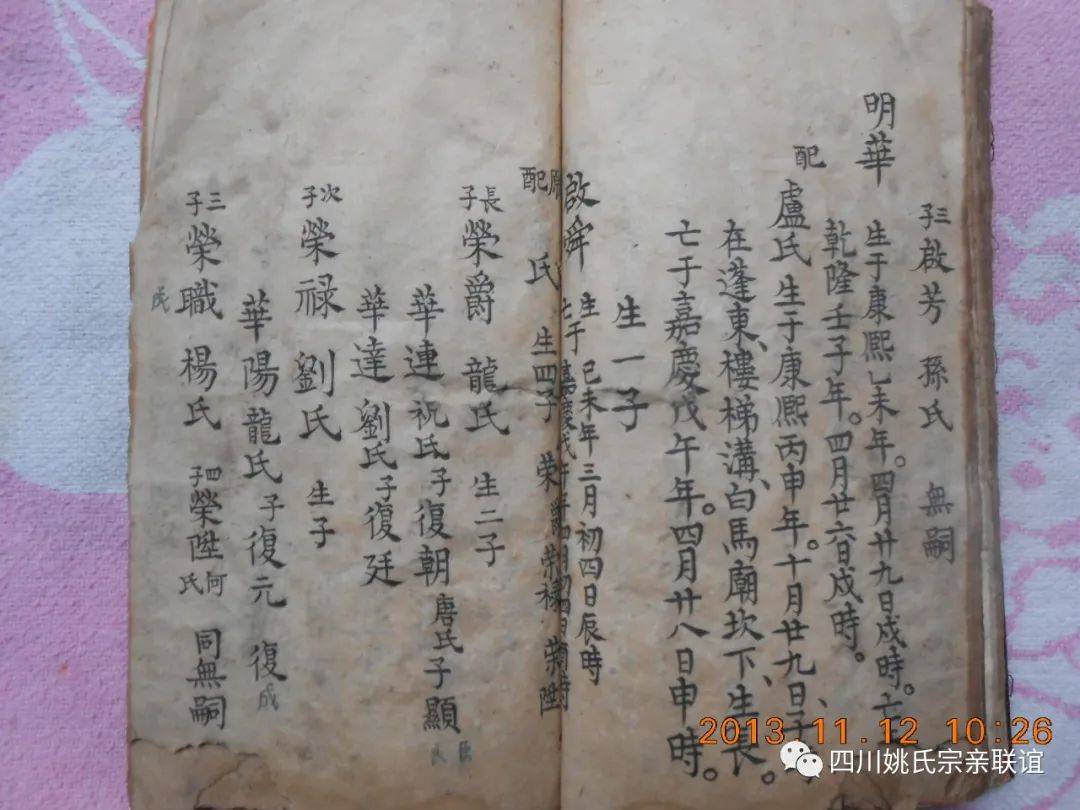 三子啟芳 孫氏 無嗣
明華 生于康熙乙未年。四月廿九日戍時。亡
乾隆壬子年。四月廿六日戍時。
配盧氏生于康熙丙申年。十月廿九日、子
在蓬東、樓梯溝、白馬廟坎下、生長。
亡于嘉慶戊午年。四月廿八日申時。
生一子
啟舜 生己未年三月初四日辰時
亡于嘉慶戊午年
原配 氏 生四子 榮爵 榮祿 榮陞
長子榮爵 龍氏 生二子
華連祝氏子復朝唐氏子顯
華達劉氏子復廷
次子榮祿 劉氏 生子
華陽龍氏子復元 復成
三子榮職 楊氏 四子榮陞何氏 同無嗣
民
2013.11.12 10:26
四川姚氏宗亲联谊